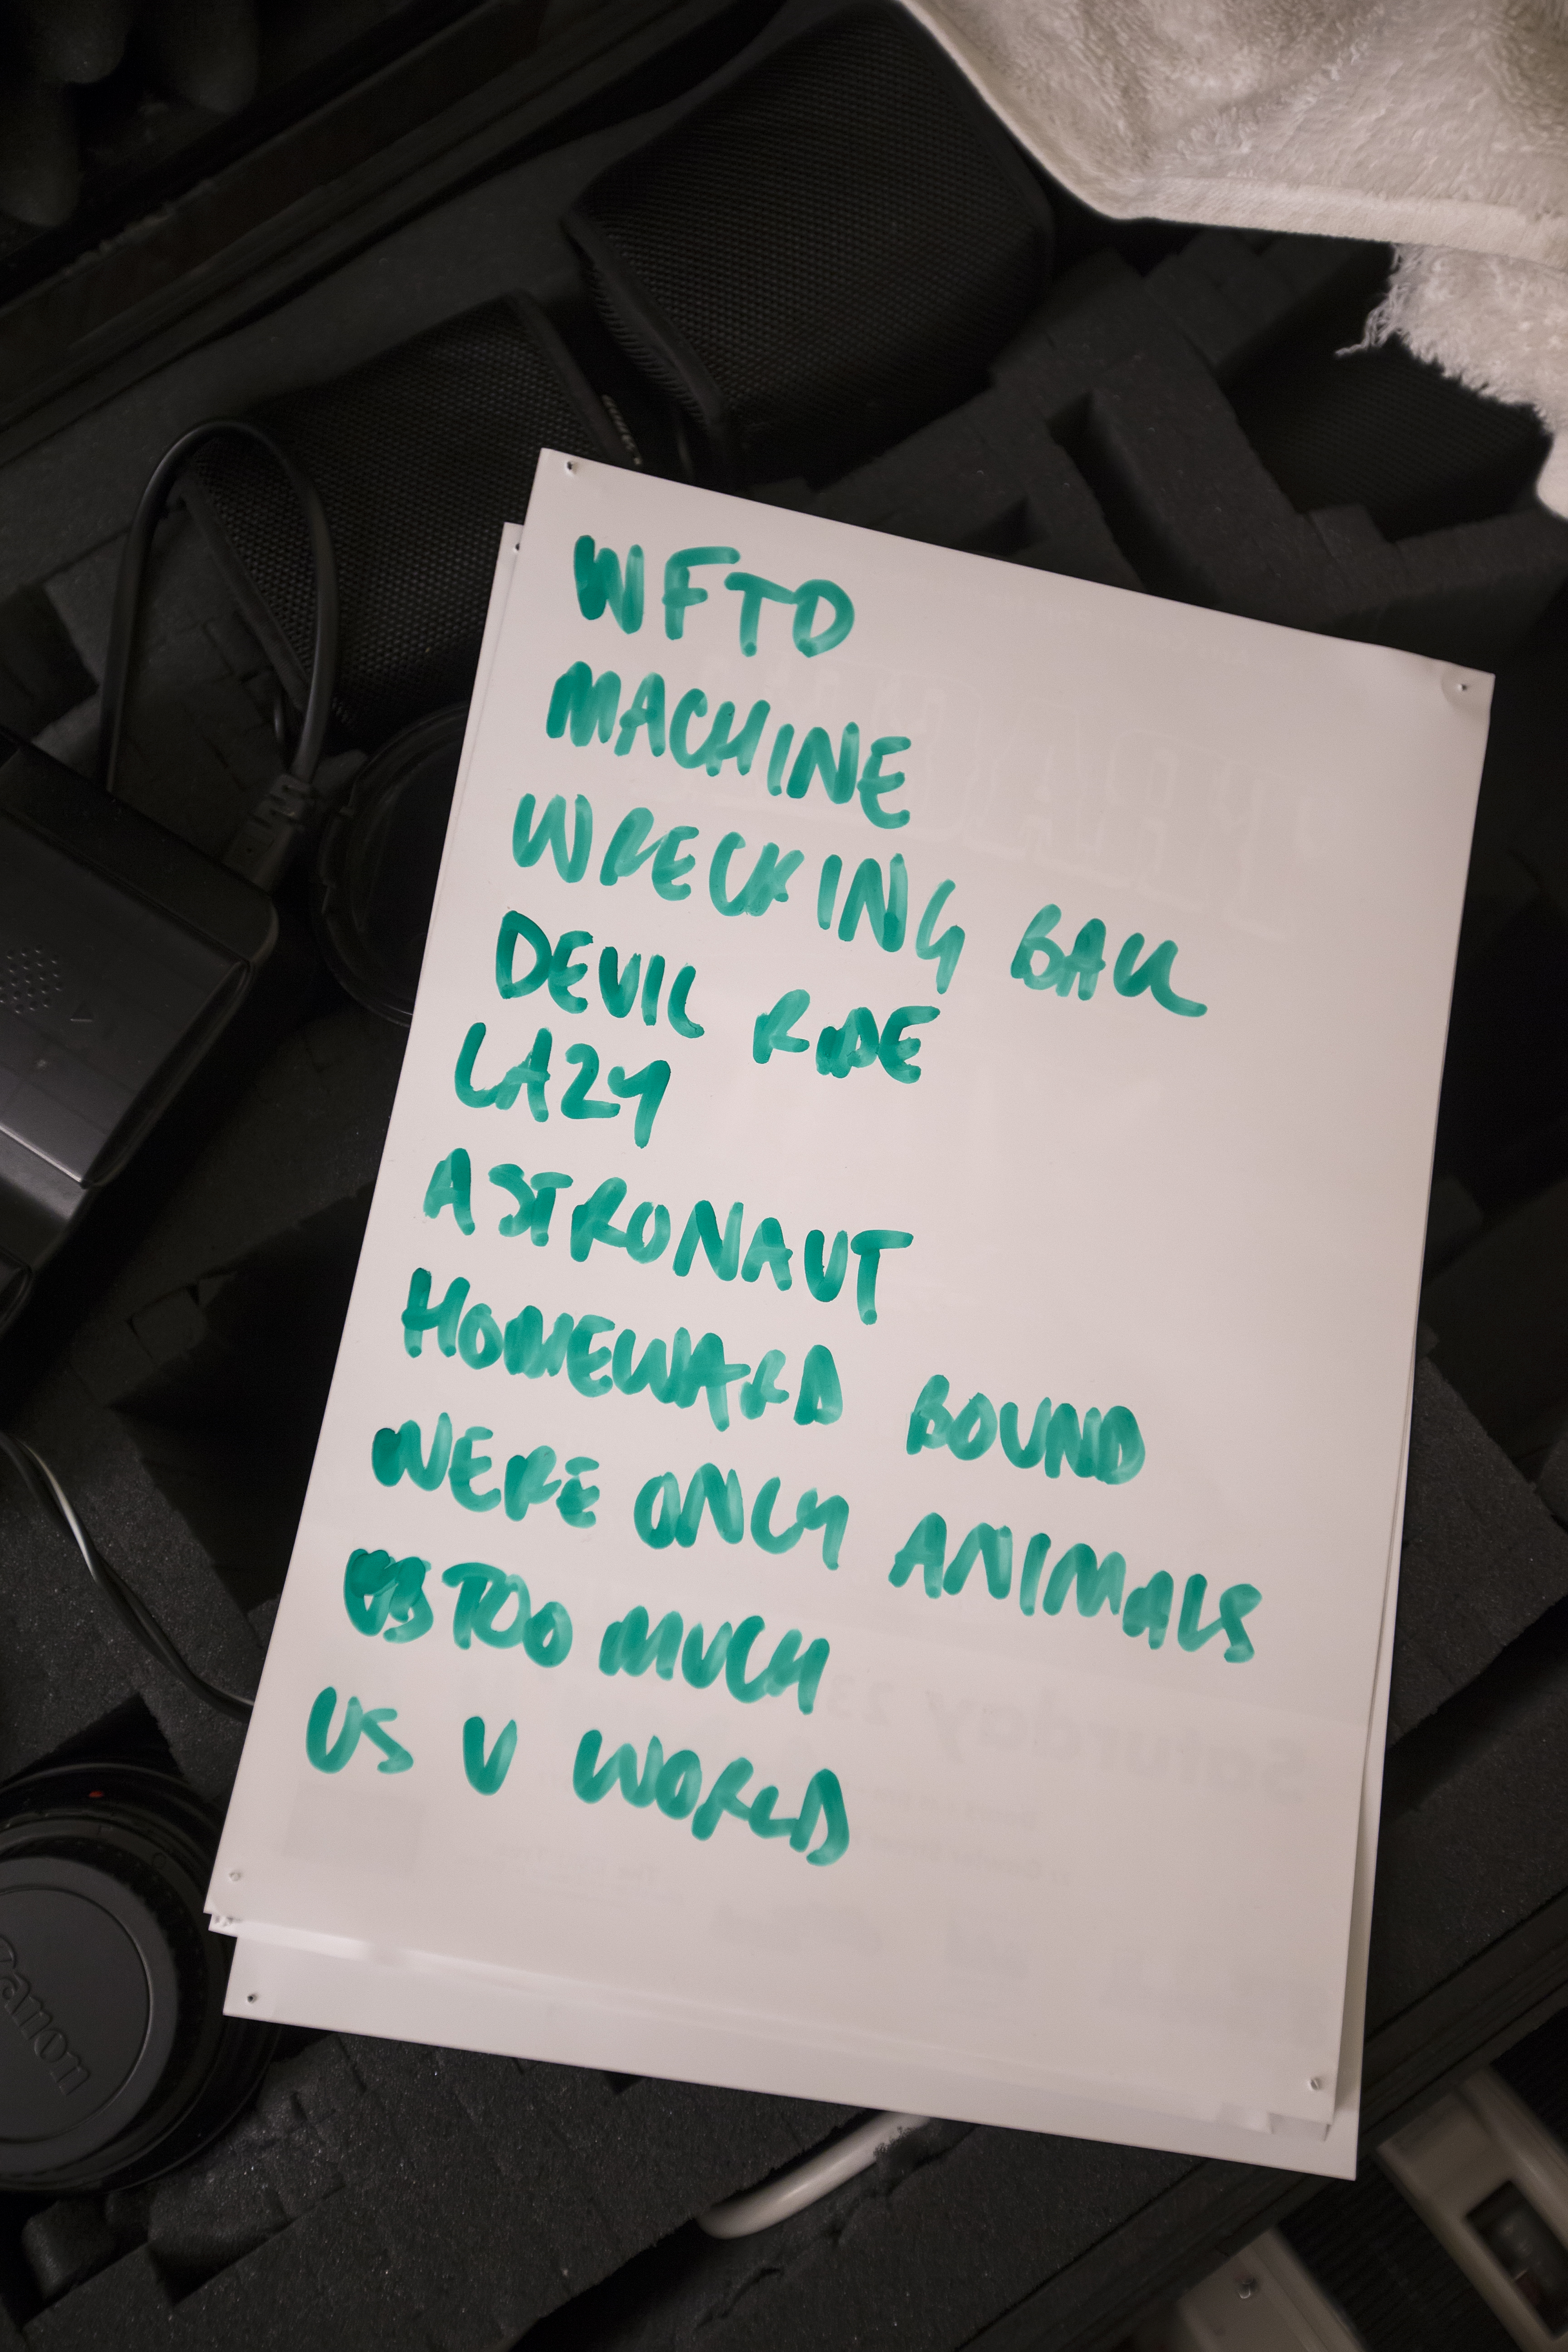 WFTD
MACHINE
WRECKING BALL
DEVIL RIDE
LAZY
ASTRONAUT
HOMEWARD BOUND
WERE ONLY ANIMALS
TOO MUCH
US V WORLD
Canon